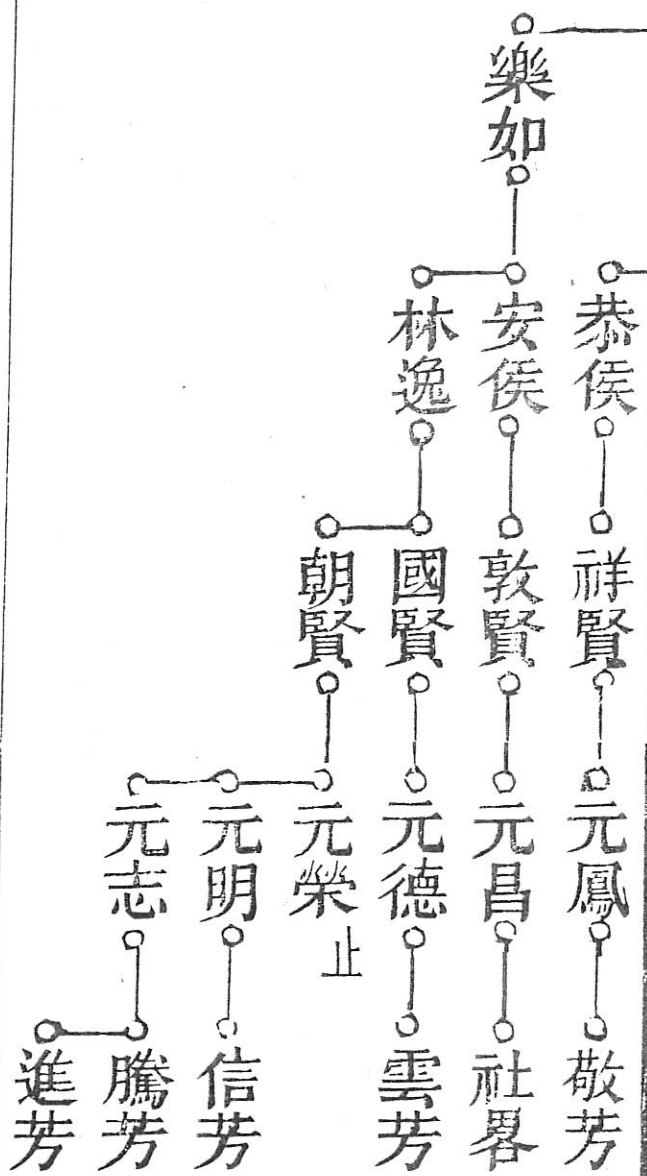 樂如
恭侯
安侯
林逸
祥賢
敦賢
國賢
朝賢
元鳳
元昌
元德
元榮
止
元明
元志
敬芳
社畧
雲芳
信芳
騰芳
進芳